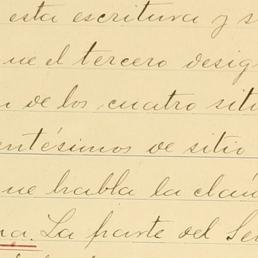 esta escritura y s
ue el tercero desig
n de los cuatro siti
entésimos de sitio
ue habla la cláu
na. La parte del Se